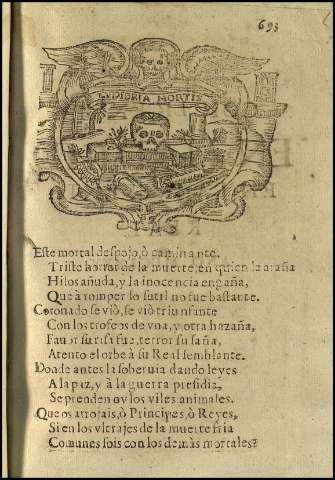 693
LVDIBRIA MORTIS
Este mortal despojo, ò caminante.
Triste horror de la muerte, en quien la araña
Hilos añuda, y la inocencia engaña,
Que à romper lo sutil no fue bastante.
Coronado se viò, se viò triunfante
Con los trofeos de vna, y otra hazaña,
Fauor su risa fue, terror su saña,
Atento el orbe à su Real semblante.
Donde antes la soberuia dando leyes
A la paz, y à la guerra presidia,
Se prenden oy los viles animales.
Que os arrojais, ò Principes, ò Reyes,
Si en los vltrajes de la muerte fria
Comunes sois con los demàs mortales?